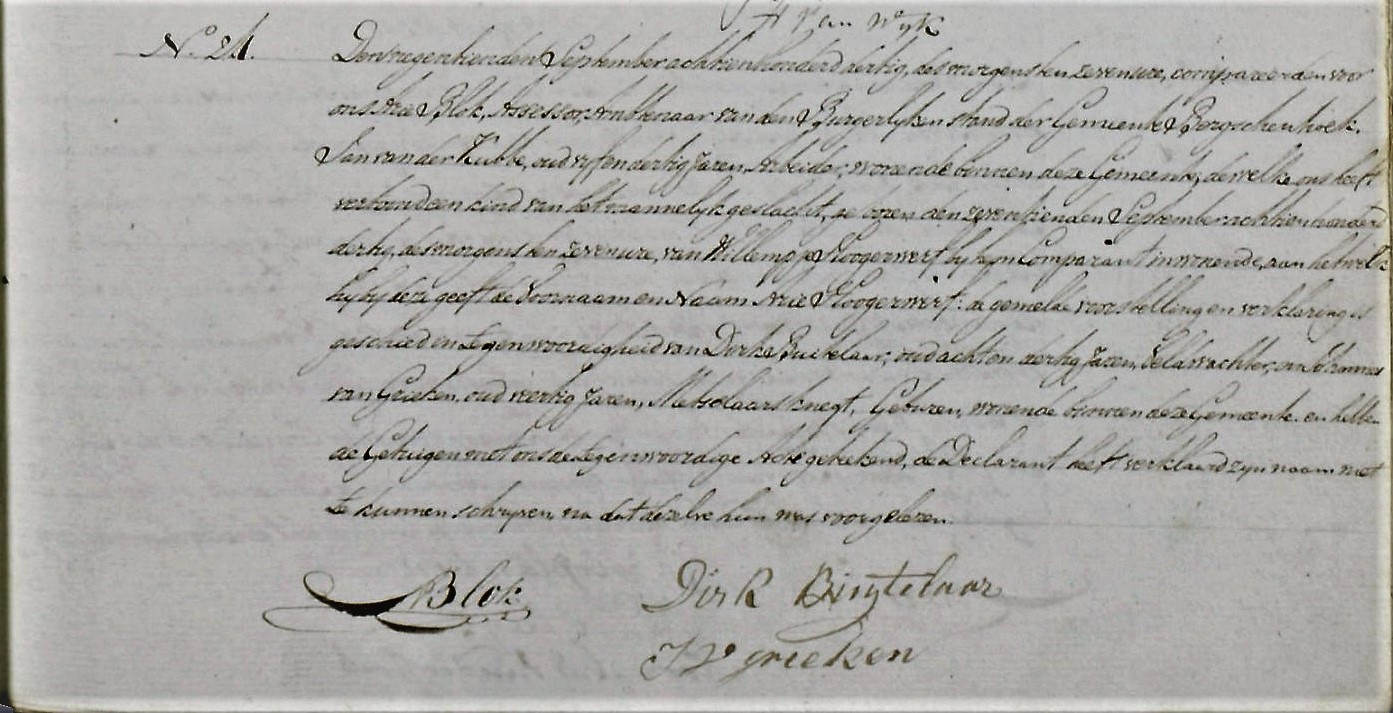 H van Wyk
No. 21.
Den negentienden September achttienhonderd dertig, des morgens ten zeven ure, compareerden voor
ons Arie Blok, Assessor, Ambtenaar van den Burgerlyken stand der Gemeente Bergschenhoek.
Jan van der Kubbe, oud vyf en dertig Jaren, Arbeider, wonende binnen deze Gemeente, dewelke ons heeft
vertoond een kind van het mannelyk geslacht, geboren den zeventienden September achttienhonderd
dertig, des morgens ten zeven ure, van Willempje Hoogerwerf by hem Comparant inwonende, aan hetwelk
hy by deze geeft de Voornaam en Naam Arie Hoogerwerf: de gemelde voorstelling en verklaring is
geschied in tegenwoordigheid van Dirk Buitelaar, oud acht en dertig Jaren, Veldwachter, en Johannes
van Grieken, oud veertig Jaren, Metselaarsknegt, Geburen, wonende binnen deze Gemeente. en hebben
de Getuigen met ons de tegenwoordige Acte getekend, de Declarant heeft verklaard zyn naam niet
te kunnen schryven, na dat dezelve hun was voorgelezen.
ABlok
Dirk Buytelaar
J V grieken